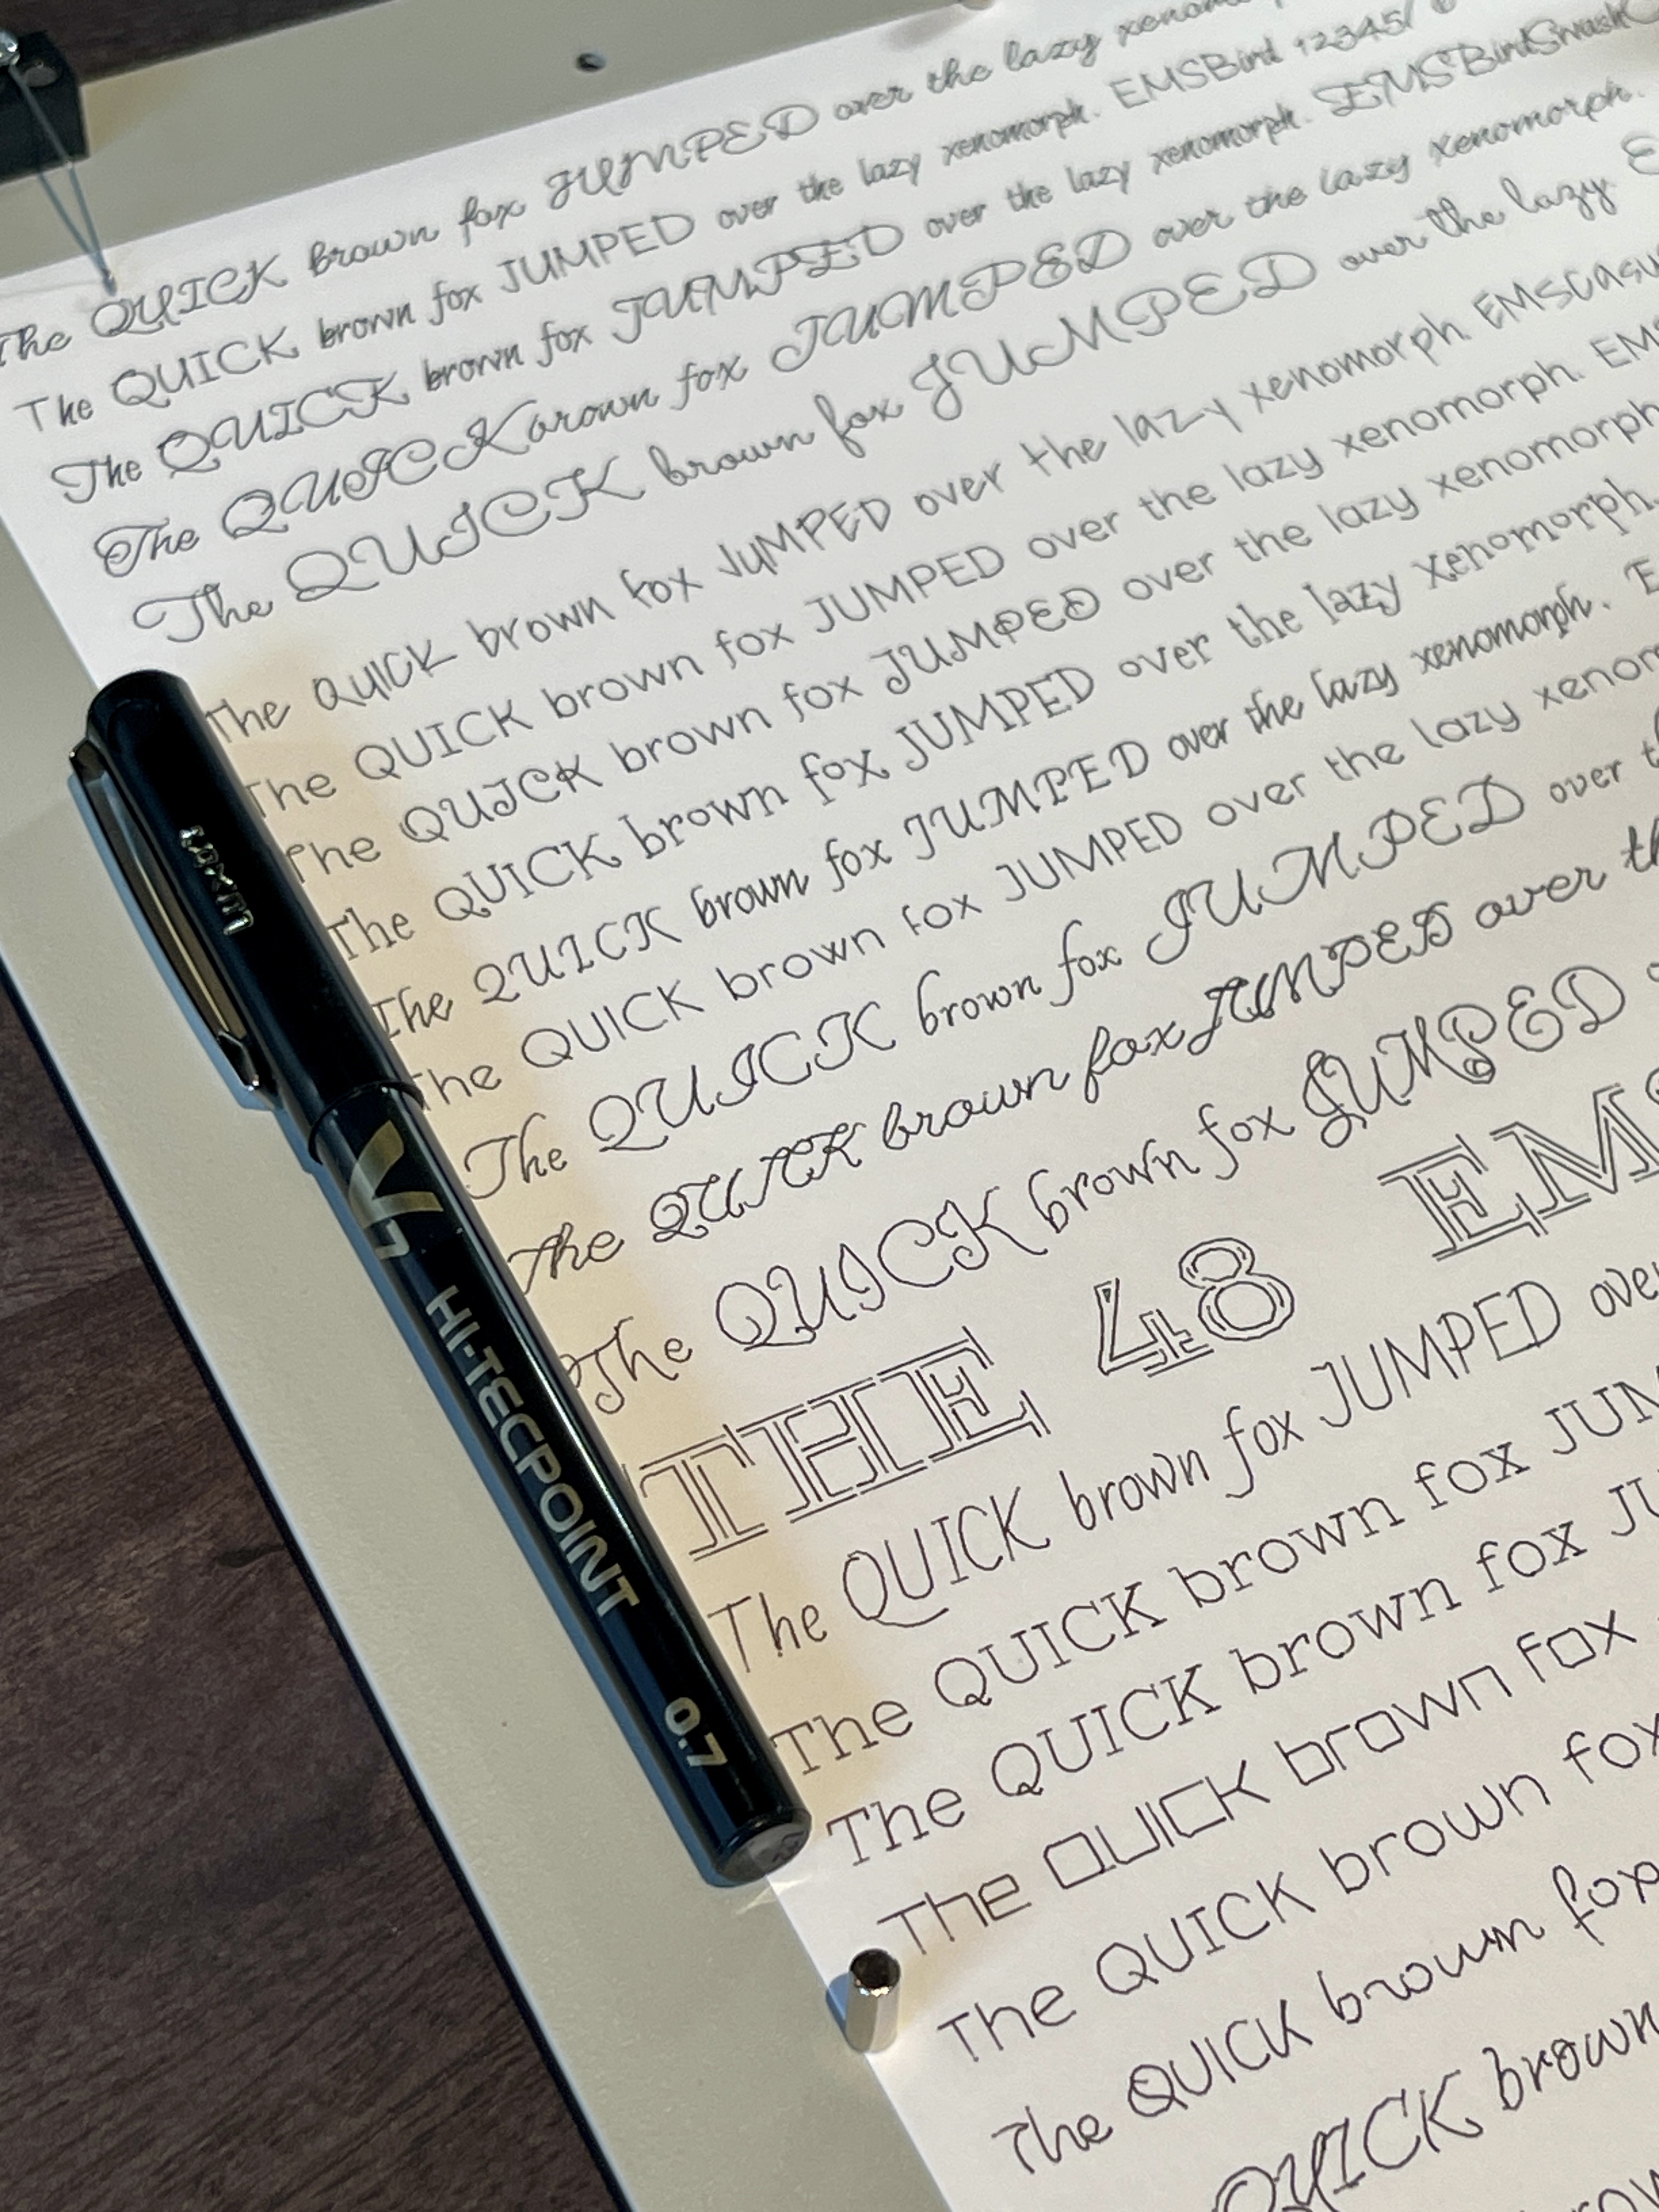 The QUICK brown fox JUMPED over the lazy
The QUICK brown fox JUMPED over the lazy xenomorph. EMSBird 12345!
The QUICK brown fox JUMPED over the lazy xenomorph. EMSBirdSwash
The QUICK brown fox JUMPED over the lazy xenomorph.
The QUICK brown fox JUMPED over the lazy
The QUICK brown fox JUMPED over the lazy xenomorph EMSCasu
The QUICK brown fox JUMPED over the lazy xenomorph. EMS
The QUICK brown fox JUMPED over the lazy xenomorph
The QUICK brown fox JUMPED over the lazy xenomorph.
The QUICK brown fox JUMPED over the lazy xenomorph. E
The QUICK brown fox JUMPED over the lazy xenom
The QUICK brown fox JUMPED over
The QUICK brown fox JUMPED over th
The QUICK brown fox JUMPED
THE 48 EMS
The QUICK brown fox JUMPED over
The QUICK brown fox JUM
The QUICK brown fox JU
The QUICK brown fox
The QUICK brown fox
The QUICK brown fox
QUICK brown
LUXOR
V7
HI-TECPOINT
0.7